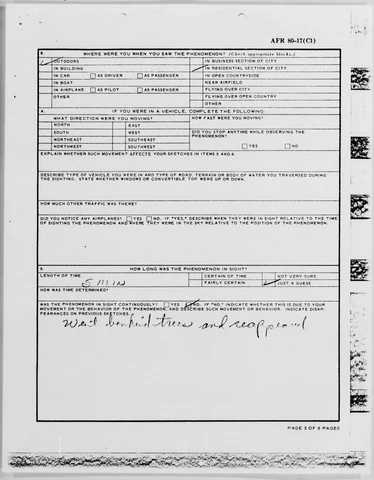 AFR 80-17(C1)
8. WHERE WERE YOU WHEN YOU SAW THE PHENOMENON? (Check appropriate blocks.)
OUTDOORS IN BUSINESS SECTION OF CITY
IN BUILDING IN RESIDENTIAL SECTION OF CITY
IN CAR AS DRIVER AS PASSENGER IN OPEN COUNTRYSIDE
IN BOAT NEAR AIRFIELD
IN AIRPLANE AS PILOT AS PASSENGER FLYING OVER CITY
OTHER FLYING OVER OPEN COUNTRY
OTHER
A. IF YOU WERE IN A VEHICLE, COMPLETE THE FOLLOWING:
WHAT DIRECTION WERE YOU MOVING? HOW FAST WERE YOU MOVING?
NORTH EAST
SOUTH WEST DID YOU STOP ANYTIME WHILE OBSERVING THE
NORTHEAST SOUTHEAST PHENOMENON?
NORTHWEST SOUTHWEST YES NO
EXPLAIN WHETHER SUCH MOVEMENT AFFECTS YOUR SKETCHES IN ITEMS 5 AND 6.
DESCRIBE TYPE OF VEHICLE YOU WERE IN AND TYPE OF ROAD, TERRAIN OR BODY OF WATER YOU TRAVERSED DURING
THE SIGHTING. STATE WHETHER WINDOWS OR CONVERTIBLE TOP WERE UP OR DOWN.
HOW MUCH OTHER TRAFFIC WAS THERE?
DID YOU NOTICE ANY AIRPLANES? YES NO. IF "YES," DESCRIBE WHEN THEY WERE IN SIGHT RELATIVE TO THE TIME
OF SIGHTING THE PHENOMENON AND WHERE THEY WERE IN THE SKY RELATIVE TO THE POSITION OF THE PHENOMENON.
9. HOW LONG WAS THE PHENOMENON IN SIGHT?
LENGTH OF TIME CERTAIN OF TIME NOT VERY SURE
5 MIN FAIRLY CERTAIN JUST A GUESS
HOW WAS TIME DETERMINED?
WAS THE PHENOMENON IN SIGHT CONTINUOUSLY? YES NO. IF "NO," INDICATE WHETHER THIS IS DUE TO YOUR
MOVEMENT OR THE BEHAVIOR OF THE PHENOMENON, AND DESCRIBE SUCH MOVEMENT OR BEHAVIOR. INDICATE DISAP-
PEARANCES ON PREVIOUS SKETCHES.
behind trees and reappeared
PAGE 3 OF 9 PAGES